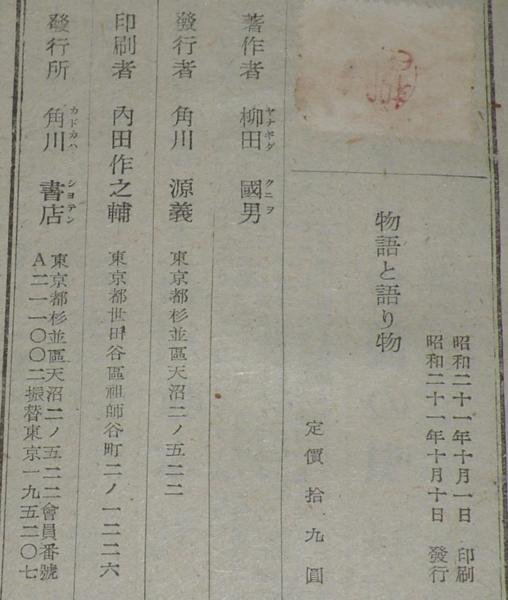 昭和二十一年十月一日 印刷
昭和二十一年十月十日 發行
物語と語り物
定價 拾九圓
著作者 柳田 國男
ヤナギダ クニヲ
發行者 角川 源義 東京都杉並區天沼二ノ五二二
印刷者 內田作之輔 東京都世田谷區祖師谷町二ノ一二二六
發行所 角川 書店
カドカハ シヨテン
東京都杉並區天沼二ノ五二二會員番號
A二一一〇〇二振替東京一九五二〇七